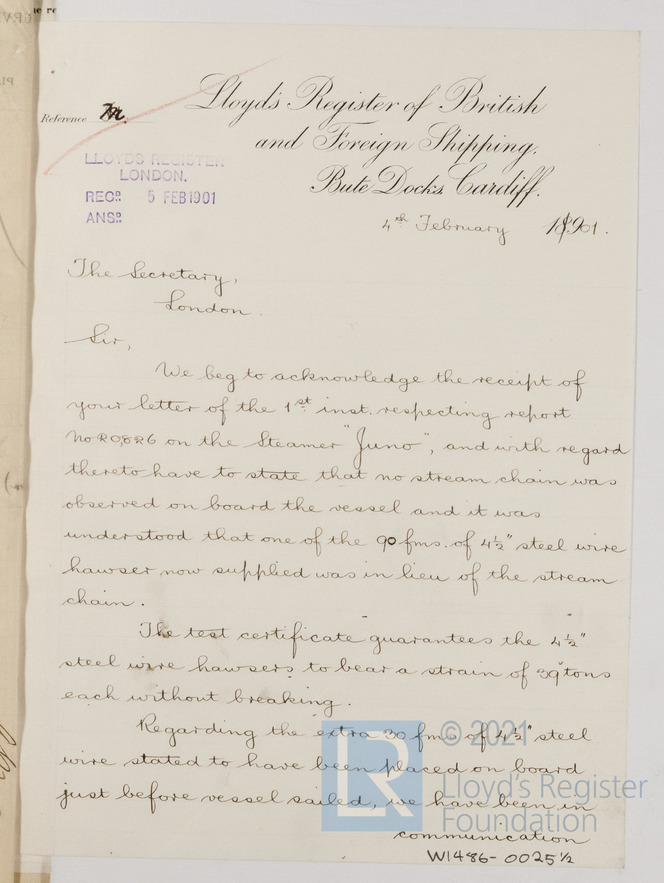 Lloyd's Register of British
and Foreign Shipping.
Reference
LLOYDS REGISTER
LONDON.
REC^D. 5 FEB 1901
ANS^D.
Bute Docks Cardiff.
4th February 1901.
The Secretary,
London.
Sir,
We beg to acknowledge the receipt of
your letter of the 1st inst. respecting report
No 20,626 on the Steamer "Juno", and with regard
thereto have to state that no stream chain was
observed on board the vessel and it was
understood that one of the 90 fms. of 4½" steel wire
hawser now supplied was in lieu of the stream
chain.
The test certificate guarantees the 4½"
steel wire hawsers to bear a strain of 39 tons
each without breaking.
Regarding the extra 30 fms of 4½" steel
wire stated to have been placed on board
just before vessel sailed, we have been in
communication
© 2021
Lloyd's Register
Foundation
LR
W1486-0025½